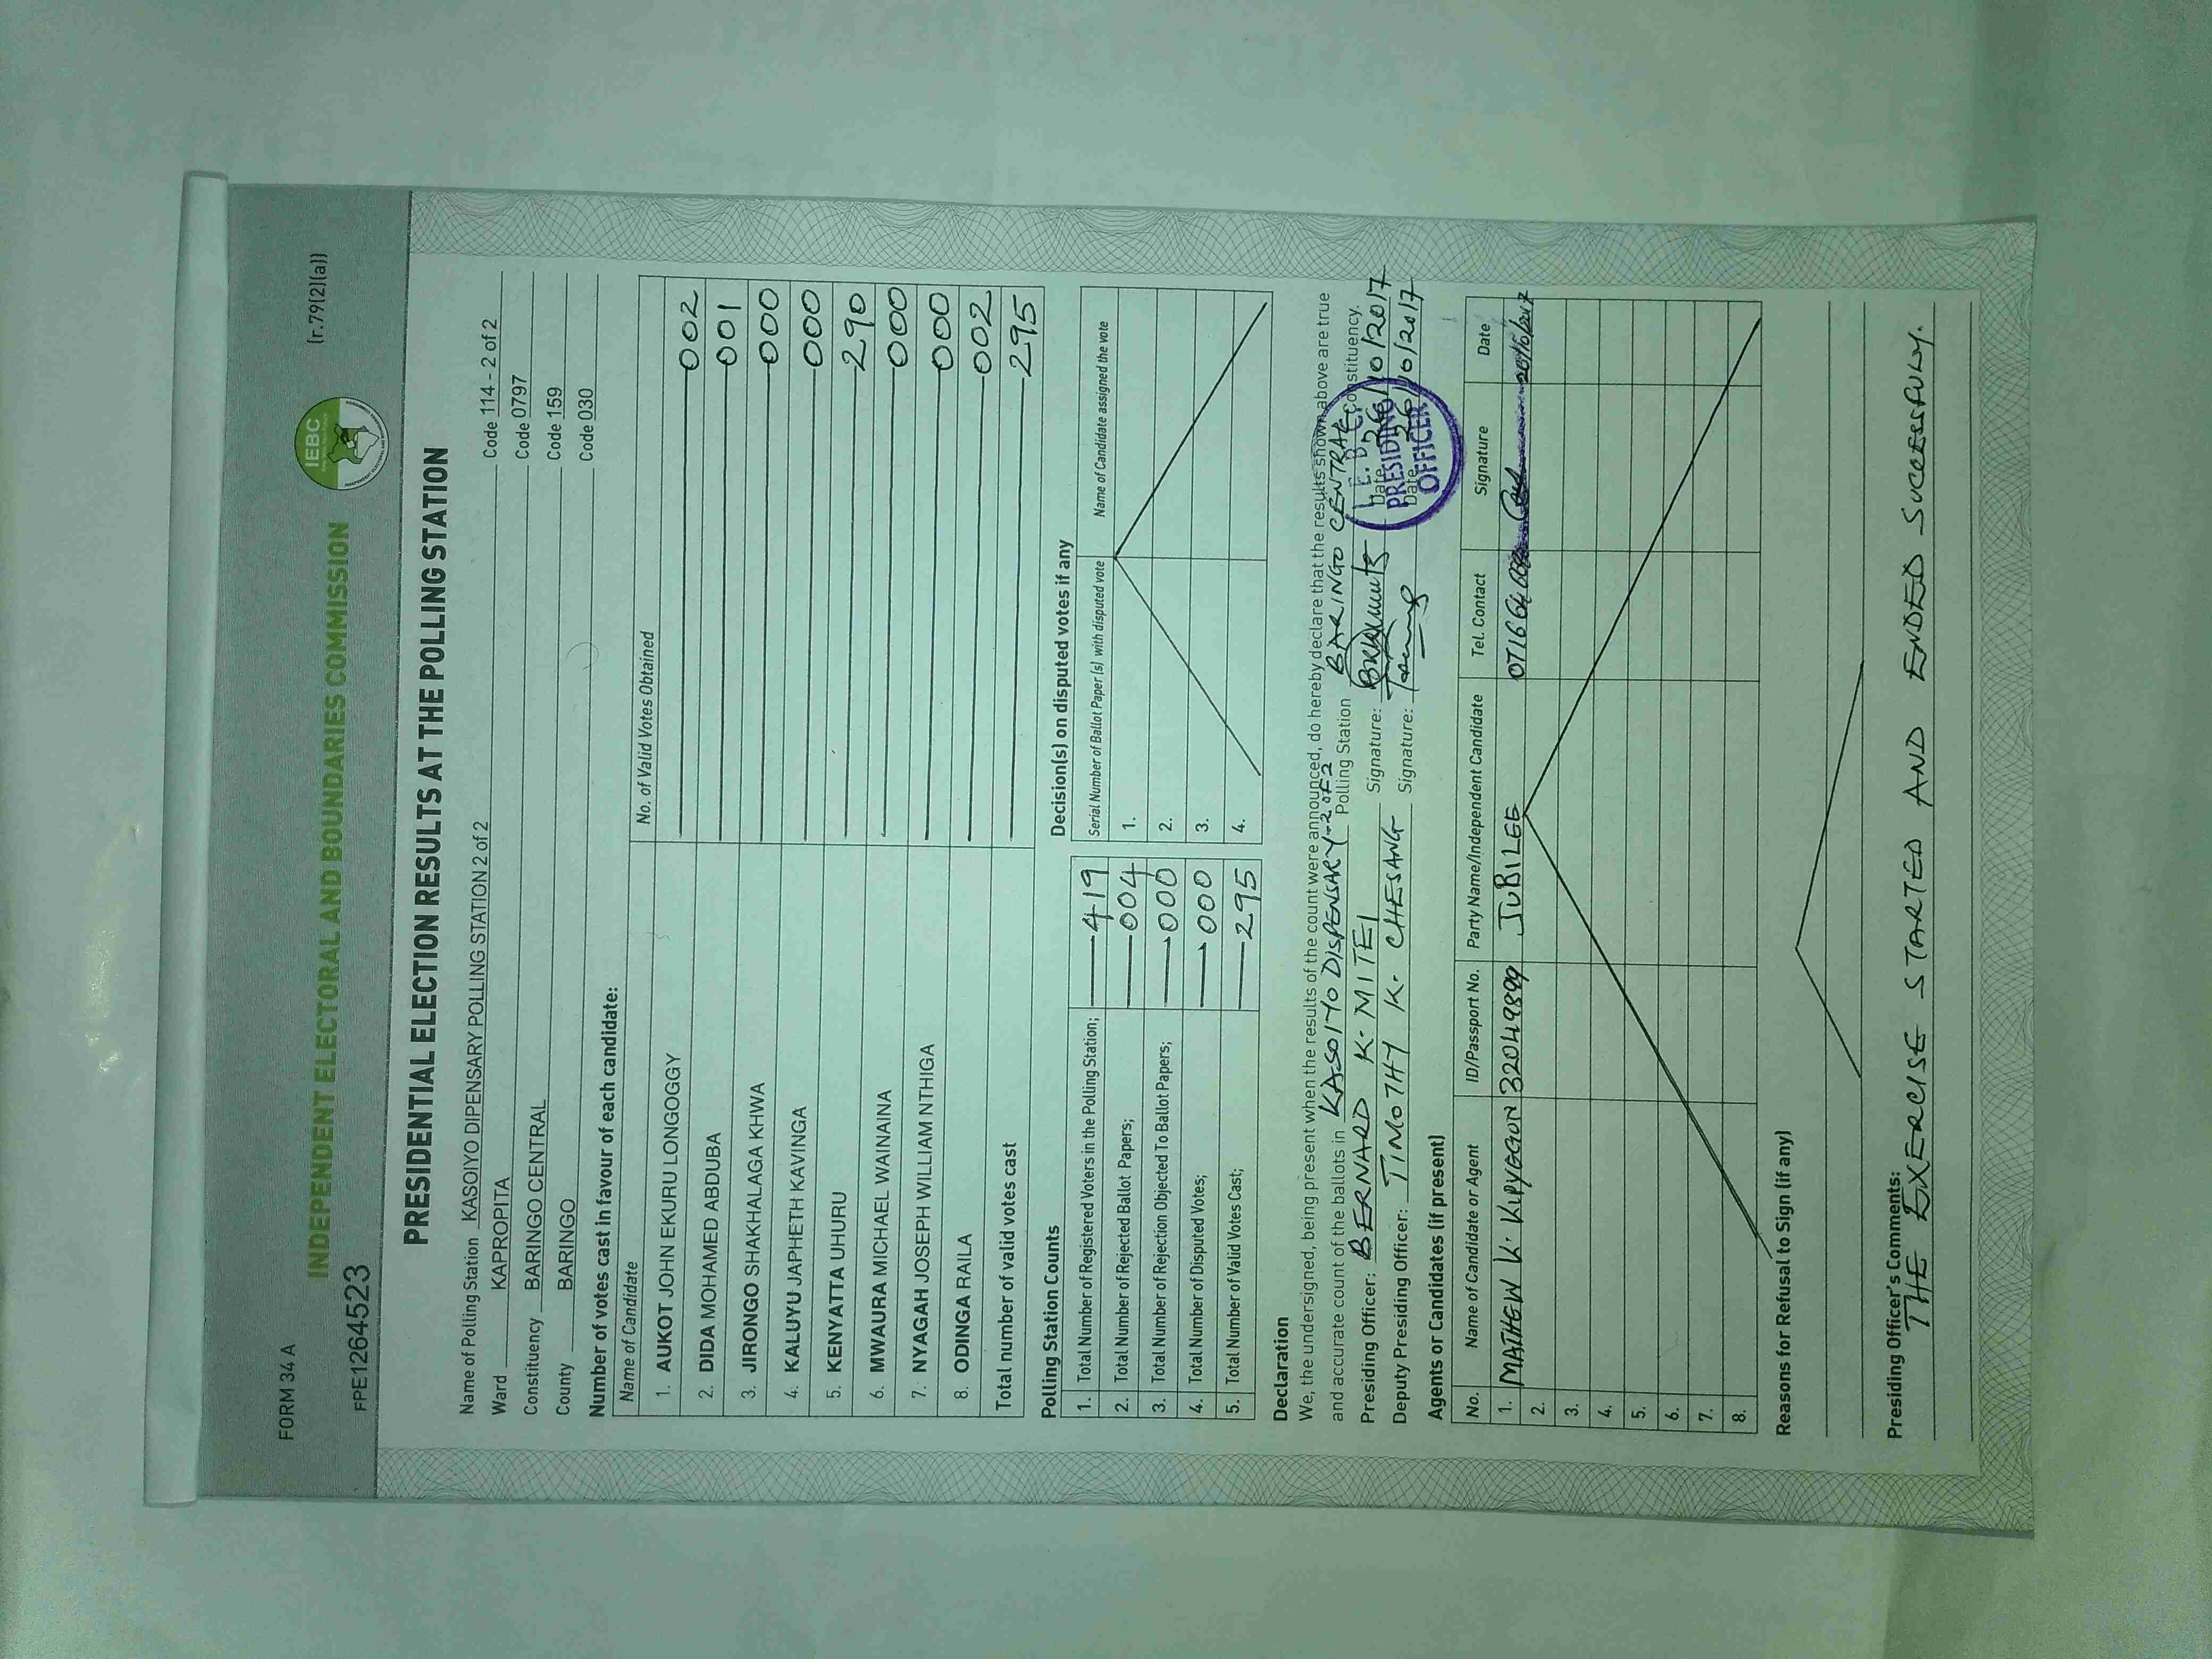 FORM 34 A
(r.79(2)(a))
IEBC
INDEPENDENT ELECTORAL AND BOUNDARIES COMMISSION
FPE1264523
PRESIDENTIAL ELECTION RESULTS AT THE POLLING STATION
Name of Polling Station KASOIYO DIPENSARY POLLING STATION 2 of 2 Code 114 - 2 of 2
Ward KAPROPITA Code 0797
Constituency BARINGO CENTRAL Code 159
County BARINGO Code 030
Number of votes cast in favour of each candidate:
Name of Candidate No. of Valid Votes Obtained
1. AUKOT JOHN EKURU LONGOGGY 002
2. DIDA MOHAMED ABDUBA 001
3. JIRONGO SHAKHALAGA KHWA 000
4. KALUYU JAPHETH KAVINGA 000
5. KENYATTA UHURU 290
6. MWAURA MICHAEL WAINAINA 000
7. NYAGAH JOSEPH WILLIAM NTHIGA 000
8. ODINGA RAILA 002
Total number of valid votes cast 295
Polling Station Counts
1. Total Number of Registered Voters in the Polling Station; 419
2. Total Number of Rejected Ballot Papers; 004
3. Total Number of Rejection Objected To Ballot Papers; 000
4. Total Number of Disputed Votes; 000
5. Total Number of Valid Votes Cast; 295
Decision(s) on disputed votes if any
Serial Number of Ballot Paper (s) with disputed vote Name of Candidate assigned the vote
1.
2.
3.
4.
Declaration
We, the undersigned, being present when the results of the count were announced, do hereby declare that the results shown above are true
and accurate count of the ballots in KASOIYO DISPENSARY-2 OF 2 Polling Station BARINGO CENTRAL Constituency.
Presiding Officer: BERNARD K. MITEI Signature: Date 26/10/2017
Deputy Presiding Officer: TIMOTHY K. CHESANG Signature: Date 26/10/2017
I.E.B.C.
PRESIDING
OFFICER
Agents or Candidates (if present)
No. Name of Candidate or Agent ID/Passport No. Party Name/Independent Candidate Tel. Contact Signature Date
1. MATHEW K. KIPYEGON JUBILEE
2.
3.
4.
5.
6.
7.
8.
Reasons for Refusal to Sign (if any)
Presiding Officer's Comments:
THE EXERCISE STARTED AND ENDED SUCCESSFULLY.